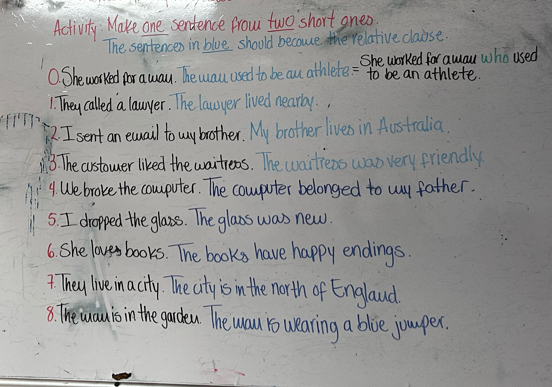 Activity. Make one sentence from two short ones.
The sentences in blue should become the relative clause.
0. She worked for a man. The man used to be an athlete = She worked for a man who used to be an athlete.
1. They called a lawyer. The lawyer lived nearby.
2. I sent an email to my brother. My brother lives in Australia.
3. The customer liked the waitress. The waitress was very friendly.
4. We broke the computer. The computer belonged to my father.
5. I dropped the glass. The glass was new.
6. She loves books. The books have happy endings.
7. They live in a city. The city is in the north of England.
8. The man is in the garden. The man is wearing a blue jumper.